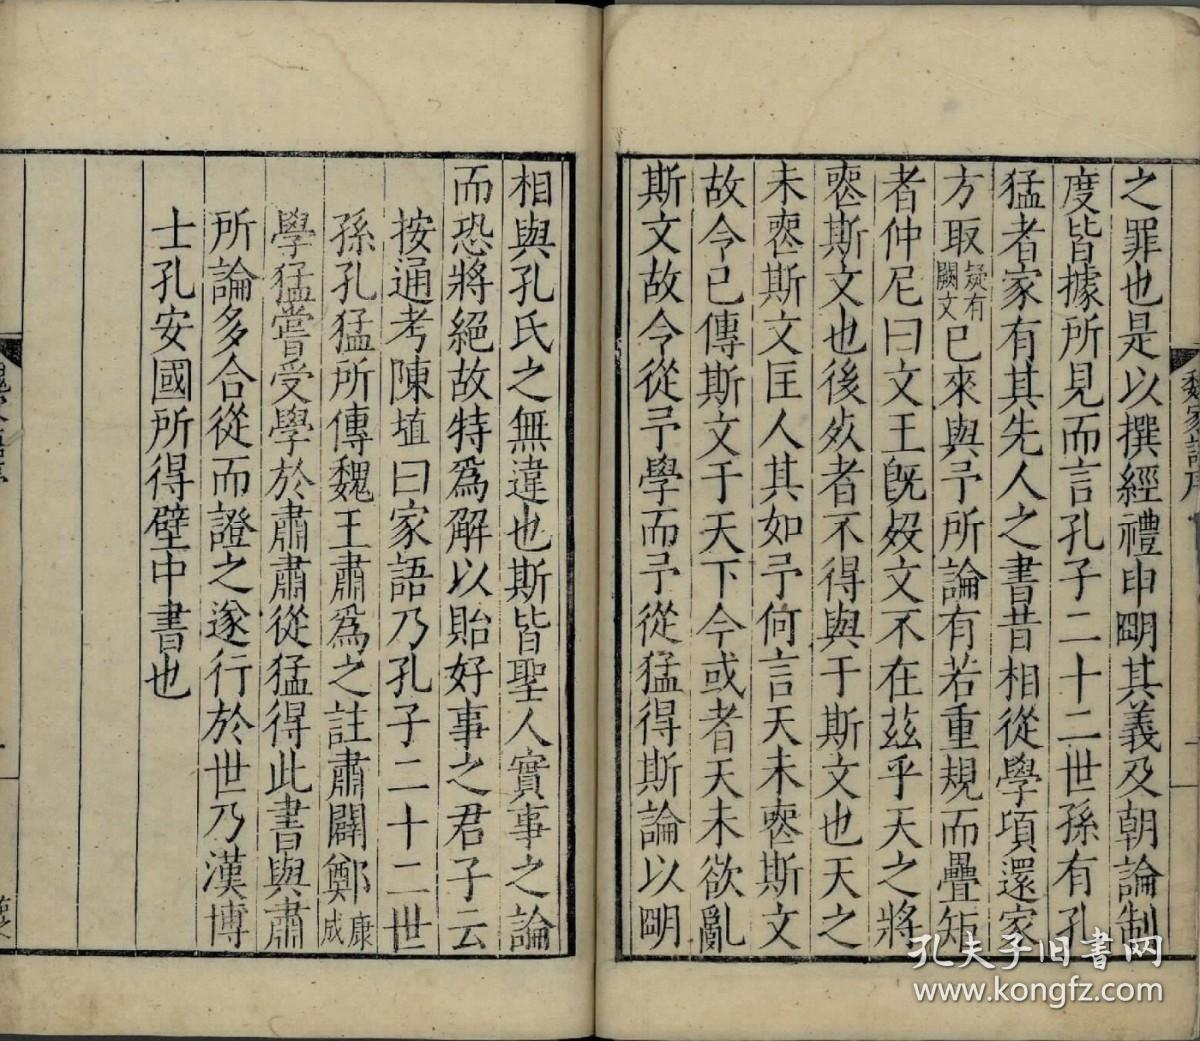 之罪也是以撰經禮申明其義及朝論制
度皆據所見而言孔子二十二世孫有孔
猛者家有其先人之書昔相從學項還家
方取疑有闕文已來與予所論有若重規而疊矩
者仲尼曰文王旣歿文不在茲乎天之將
喪斯文也後死者不得與于斯文也天之
未喪斯文匡人其如予何言天未喪斯文
故令已傳斯文于天下今或者天未欲亂
斯文故令從予學而予從猛得斯論以明
相與孔氏之無違也斯皆聖人實事之論
而恐將絕故特爲解以貽好事之君子云
按通考陳埴曰家語乃孔子二十二世
孫孔猛所傳魏王肅爲之註肅闢鄭康成
學猛嘗受學於肅肅從猛得此書與肅
所論多合從而證之遂行於世乃漢博
士孔安國所得壁中書也
魏家語序
孔夫子旧书网
www.kongfz.com